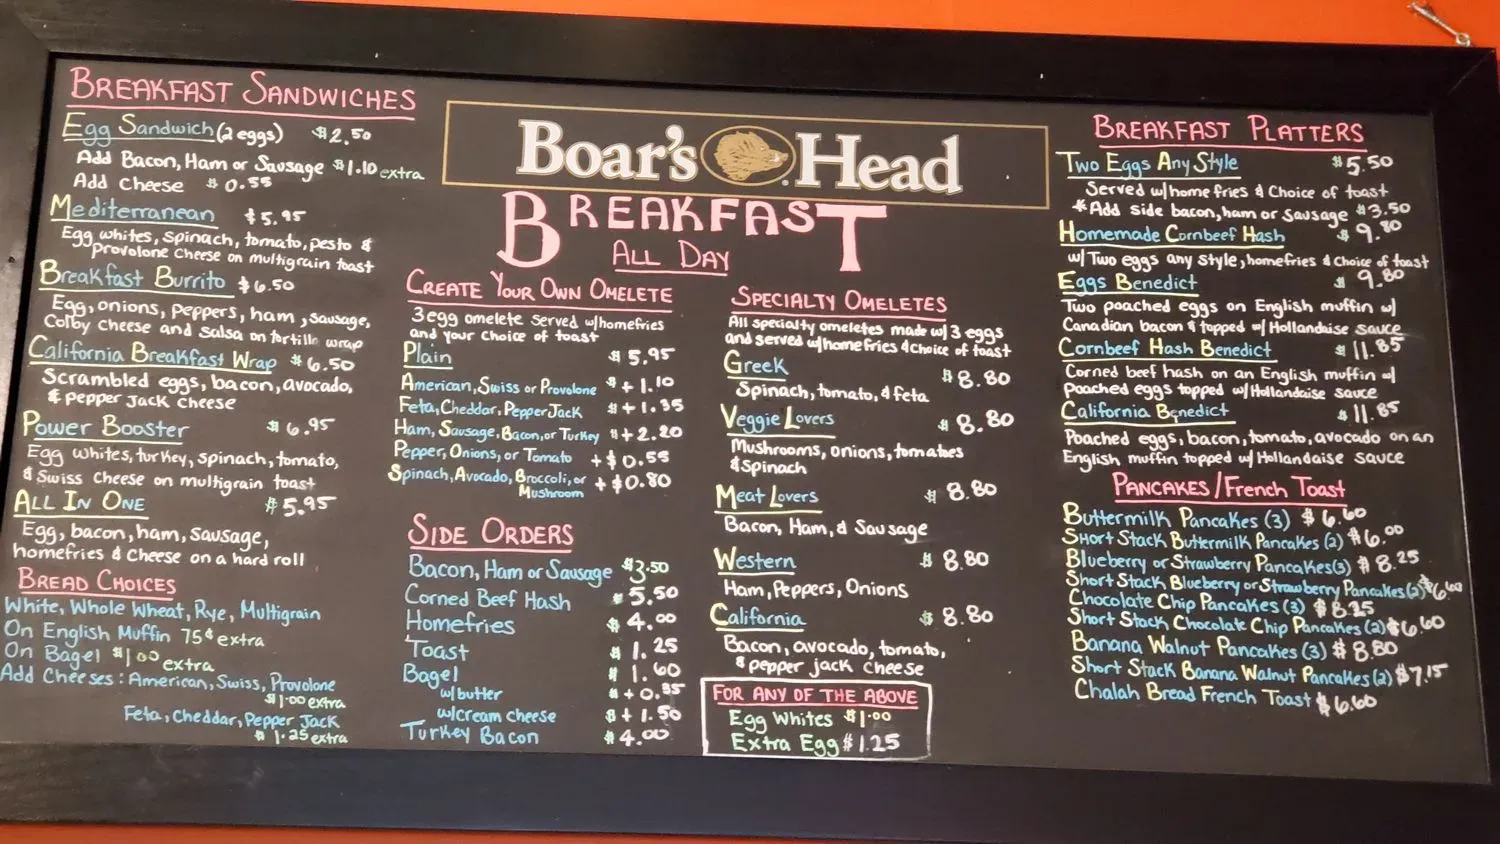 BREAKFAST SANDWICHES
Egg Sandwich (2 eggs) $2.50
Add Bacon, Ham or Sausage $1.10 extra
Add Cheese $0.55
Mediterranean $5.95
Egg whites, spinach, tomato, pesto &
Provolone Cheese on multigrain toast
Breakfast Burrito $6.50
Egg, onions, peppers, ham, sausage,
Colby cheese and salsa on tortilla wrap
California Breakfast Wrap $6.50
Scrambled eggs, bacon, avocado,
& pepper jack cheese
Power Booster $6.95
Egg whites, turkey, spinach, tomato,
& Swiss cheese on multigrain toast
ALL IN ONE $5.95
Egg, bacon, ham, sausage,
homefries & cheese on a hard roll
BREAD CHOICES
White, Whole Wheat, Rye, Multigrain
On English Muffin 75¢ extra
On Bagel $1.00 extra
Add Cheeses: American, Swiss, Provolone
$1.00 extra
Feta, Cheddar, Pepper Jack
$1.25 extra
Boar's Head
BREAKFAST
ALL DAY
CREATE YOUR OWN OMELETE
3 egg omelete served w/homefries
and your choice of toast
Plain $5.95
American, Swiss or Provolone $+1.10
Feta, Cheddar, Pepper Jack $+1.35
Ham, Sausage, Bacon, or Turkey $+2.20
Pepper, Onions, or Tomato +$0.55
Spinach, Avocado, Broccoli, or
Mushroom +$0.80
SIDE ORDERS
Bacon, Ham or Sausage $3.50
Corned Beef Hash $5.50
Homefries $4.00
Toast $1.25
Bagel $1.60
w/butter $+0.55
w/cream cheese $+1.50
Turkey Bacon $4.00
SPECIALTY OMELETES
All specialty omeletes made w/ 3 eggs
and served w/home fries & choice of toast
Greek $8.80
Spinach, tomato, & feta
Veggie Lovers $8.80
Mushrooms, onions, tomatoes
& spinach
Meat Lovers $8.80
Bacon, Ham, & Sausage
Western $8.80
Ham, Peppers, Onions
California $8.80
Bacon, avocado, tomato,
& pepper jack cheese
FOR ANY OF THE ABOVE
Egg Whites $1.00
Extra Egg $1.25
BREAKFAST PLATTERS
Two Eggs Any Style $5.50
Served w/home fries & Choice of toast
*Add side bacon, ham or sausage $3.50
Homemade Cornbeef Hash $9.80
w/ Two eggs any style, homefries & Choice of toast
Eggs Benedict $9.80
Two poached eggs on English muffin w/
Canadian bacon & topped w/ Hollandaise sauce
Cornbeef Hash Benedict $11.85
Corned beef hash on an English muffin w/
poached eggs topped w/ Hollandaise sauce
California Benedict $11.85
Poached eggs, bacon, tomato, avocado on an
English muffin topped w/ Hollandaise sauce
PANCAKES/FRENCH TOAST
Buttermilk Pancakes (3) $6.60
Short Stack Buttermilk Pancakes (2) $6.00
Blueberry or Strawberry Pancakes (3) $8.25
Short Stack Blueberry or Strawberry Pancakes (2) $6.60
Chocolate Chip Pancakes (3) $8.25
Short Stack Chocolate Chip Pancakes (2) $6.60
Banana Walnut Pancakes (3) $8.80
Short Stack Banana Walnut Pancakes (2) $7.15
Chalah Bread French Toast $6.60